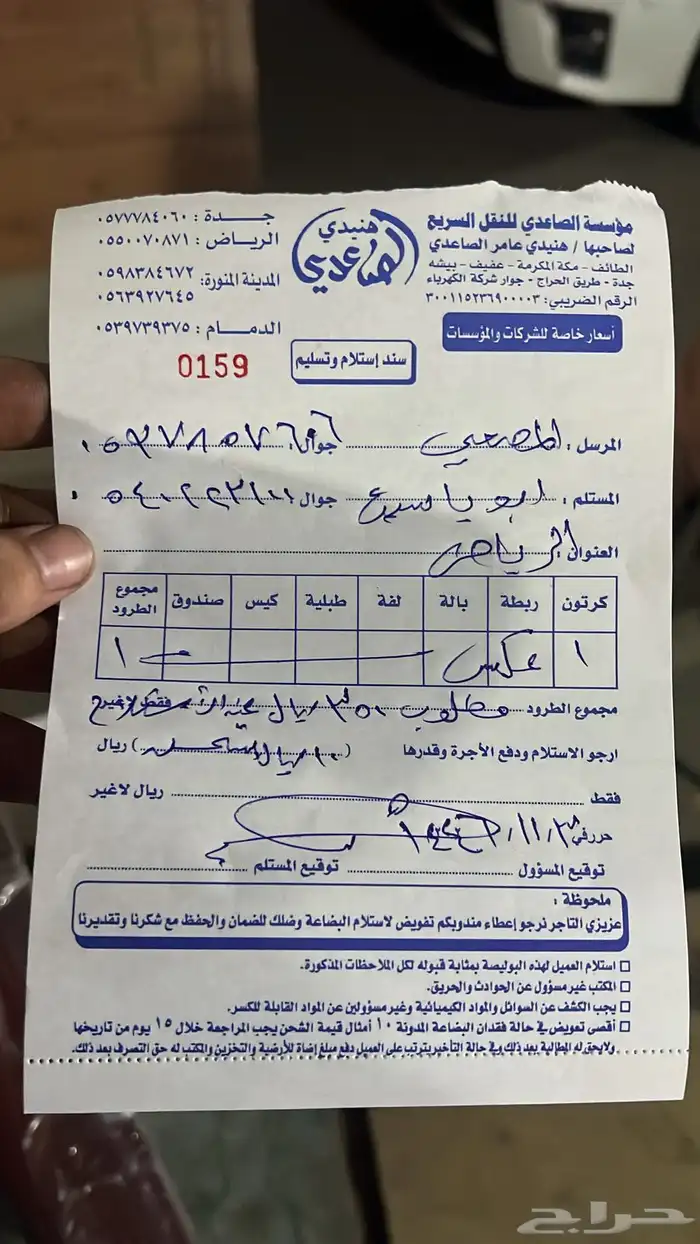 مؤسسة الصاعدي للنقل السريع
لصاحبها / هنيدي عامر الصاعدي
الطائف - مكة المكرمة - عفيف - بيشه
جدة - طريق الحراج - جوار شركة الكهرباء
الرقم الضريبي: ٣٠٠١١٥٢٣٦٩٠٠٠٠٣
أسعار خاصة للشركات والمؤسسات
هنيدي
الصاعدي
جـــدة : ٠٥٧٧٧٨٤٠٦٠
الرياض : ٠٥٥٠٠٧٠٨٧١
المدينة المنورة: ٠٥٩٨٣٨٤٦٧٢
٠٥٦٣٩٢٧٦٤٥
الدمام : ٠٥٣٩٧٣٩٣٧٥
سند إستلام وتسليم
0159
المرسل : جوال:
المستلم : ابو ياسر جوال :
العنوان : الرياض
كرتون ربطة بالة لفة طبلية كيس صندوق مجموع الطرود
١ عكس ١
مجموع الطرود مطلوب ٣٥٠ ريال فقط لاغير
ارجو الاستلام ودفع الأجرة وقدرها ( ) ريال
فقط ريال لاغير
حرر في
توقيع المسؤول توقيع المستلم
ملحوظة :
عزيزي التاجر نرجو إعطاء مندوبكم تفويض لاستلام البضاعة وضلك للضمان والحفظ مع شكرنا وتقديرنا
استلام العميل لهذه البوليصة بمثابة قبوله لكل الملاحظات المذكورة.
المكتب غير مسؤول عن الحوادث والحريق.
يجب الكشف عن السوائل والمواد الكيميائية وغير مسؤولين عن المواد القابلة للكسر.
أقصى تعويض في حالة فقدان البضاعة المدونة ١٠ أمثال قيمة الشحن يجب المراجعة خلال ١٥ يوم من تاريخها
ولايحق له المطالبة بعد ذلك وفي حالة التأخير يترتب على العميل دفع مبلغ إضافة للأرضية والتخزين والمكتب له حق التصرف بعد ذلك.
حراج